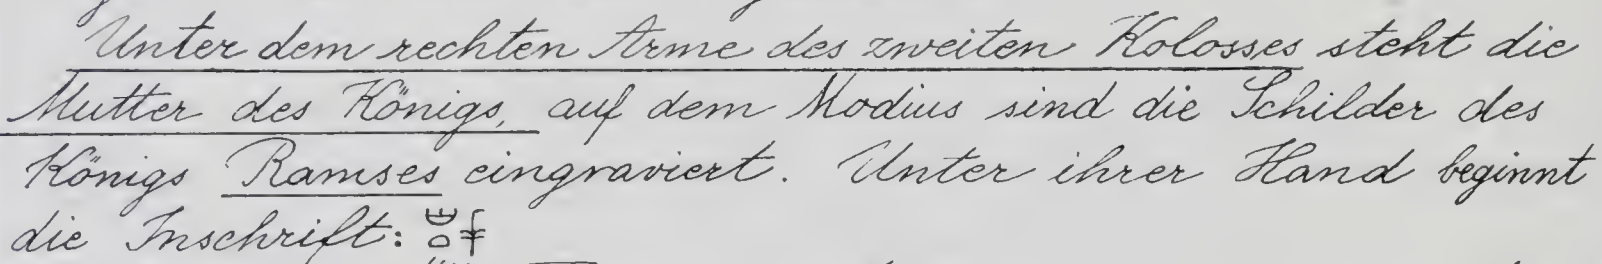 Unter dem rechten Arme des zweiten Kolosses steht die
Mutter des Königs, auf dem Modius sind die Schilder des
Königs Ramses eingraviert. Unter ihrer Hand beginnt
die Inschrift: